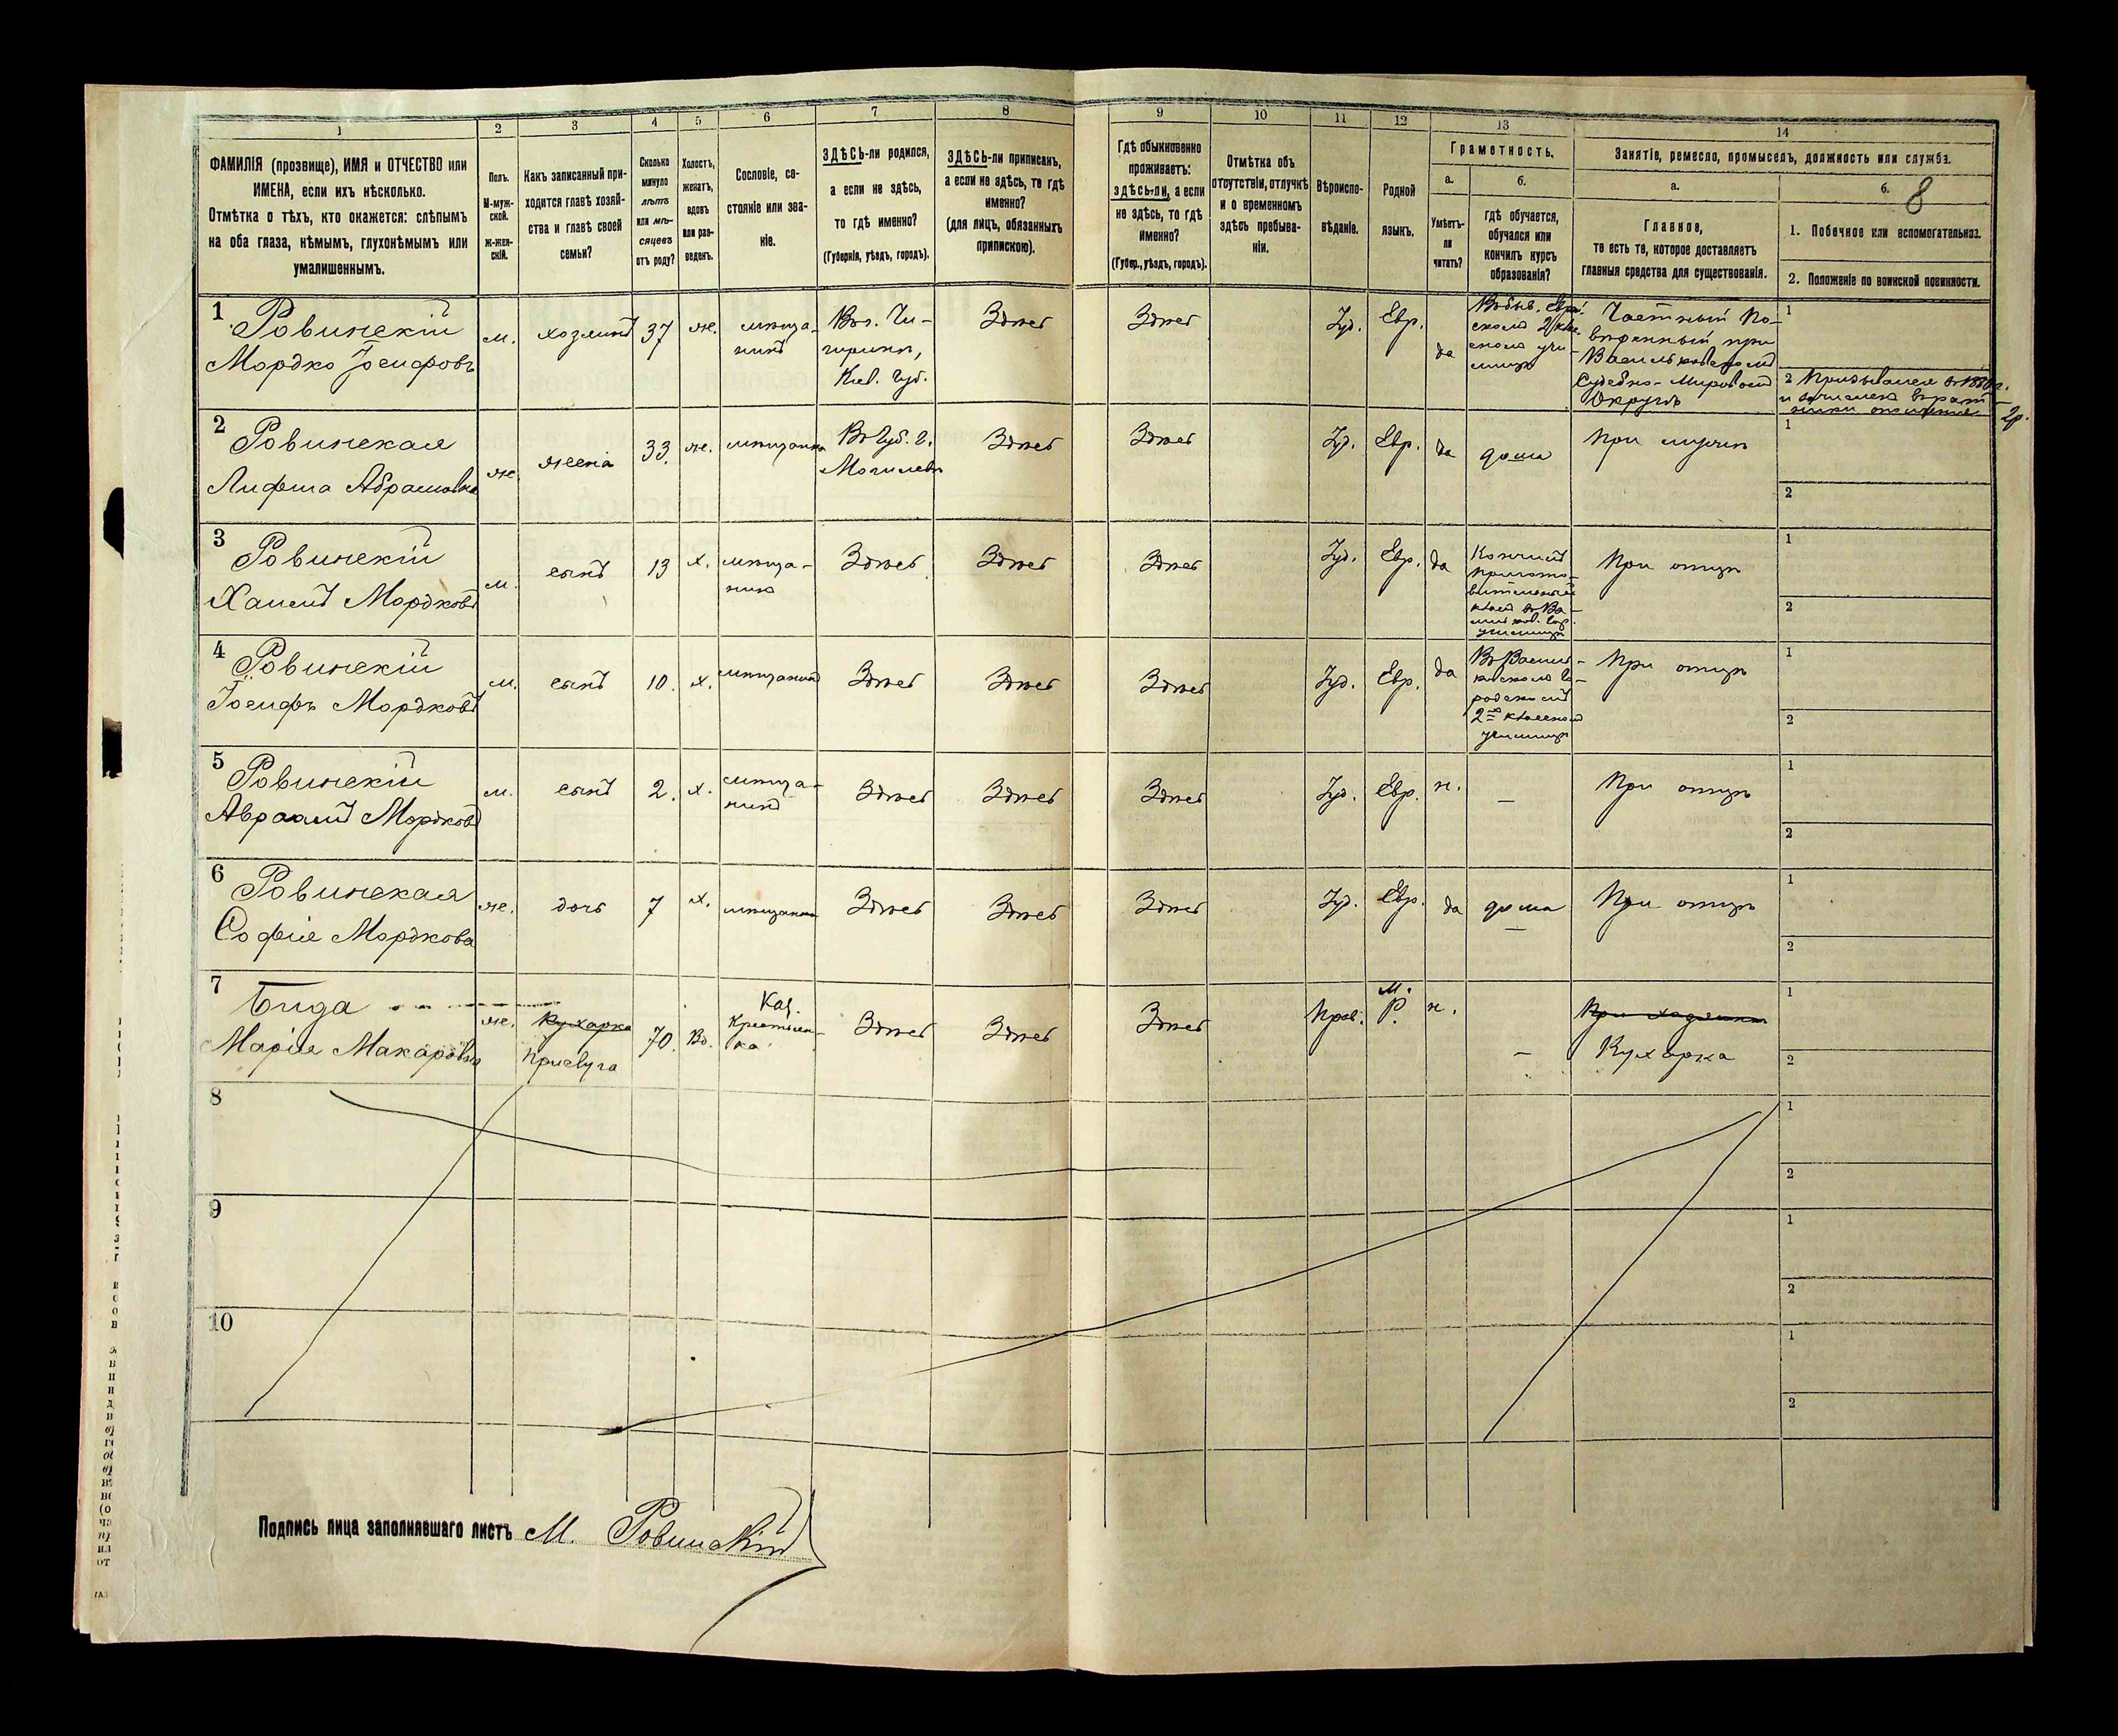 1
2
3
4
5
6
7
8
9
10
11
12
13
14
ФАМИЛІЯ (прозвище), ИМЯ и ОТЧЕСТВО или
ИМЕНА, если ихъ нѣсколько.
Отмѣтка о тѣхъ, кто окажется: слѣпымъ
на оба глаза, нѣмымъ, глухонѣмымъ или
умалишеннымъ.
Полъ.
М-муж-
ской.
Ж-жен-
скій.
Какъ записанный при-
ходится главѣ хозяй-
ства и главѣ своей
семьи?
Сколько
минуло
лѣтъ
или мѣ-
сяцевъ
отъ роду?
Холостъ,
женатъ,
вдовъ
или раз-
веденъ.
Сословіе, со-
стояніе или зва-
ніе.
ЗДѢСЬ-ли родился,
а если не здѣсь,
то гдѣ именно?
(Губернія, уѣздъ, городъ).
ЗДѢСЬ-ли приписанъ,
а если не здѣсь, то гдѣ
именно?
(для лицъ, обязанныхъ
припискою).
Гдѣ обыкновенно
проживаетъ:
здѣсь-ли, а если
не здѣсь, то гдѣ
именно?
(Губер., уѣздъ, городъ).
Отмѣтка объ
отсутствіи, отлучкѣ
и о временномъ
здѣсь пребыва-
ніи.
Вѣроиспо-
вѣданіе.
Родной
языкъ.
Грамотность.
а.
Умѣетъ-
ли
читать?
б.
Гдѣ обучается,
обучался или
кончилъ курсъ
образованія?
Занятіе, ремесло, промыселъ, должность или служба.
а.
Главное,
то есть то, которое доставляетъ
главныя средства для существованія.
б.
8
1. Побочное или вспомогательное.
2. Положеніе по воинской повинности.
1
Ровинскій
Мордко Іосифовъ
м.
хозяинъ
37
же.
мѣща-
нинъ
Въ г. Чи-
гиринѣ,
Кіев. Губ.
Здѣсь
Здѣсь
Іуд.
Евр.
да
Частный По-
вѣренный при
Васильковскомъ
Судебно-Мировомъ
Округѣ
1
2
2
Ровинская
Лифша Абрамовна
же
жена
33.
же.
мѣщанка
Въ Губ. г.
Могилевѣ
Здѣсь
Здѣсь
Іуд.
Евр.
да
дома
При мужѣ
1
2
3
Ровинскій
Хаимъ Мордковъ
м.
сынъ
13
х.
мѣща-
нинъ
Здѣсь
Здѣсь
Здѣсь
Іуд.
Евр.
да
Кончилъ
пригото-
вительный
класъ въ Ва-
сильков. гор.
училищѣ
При отцѣ
1
2
4
Ровинскій
Іосифъ Мордковъ
м.
сынъ
10.
х.
мѣщанинъ
Здѣсь
Здѣсь
Здѣсь
Іуд.
Евр.
да
Въ Василь-
ковскомъ го-
родскомъ
2хъ класномъ
училищѣ
При отцѣ
1
2
5
Ровинскій
Авраамъ Мордковъ
м.
сынъ
2.
х.
мѣща-
нинъ
Здѣсь
Здѣсь
Здѣсь
Іуд.
Евр.
н.
—
При отцѣ
1
2
6
Ровинская
Софія Мордкова
же.
дочь
7
х.
мѣщанка
Здѣсь
Здѣсь
Здѣсь
Іуд.
Евр.
да
дома
При отцѣ
1
2
7
Бида
Марія Макаровна
же.
Кухарка
Прислуга
70.
Вд.
Каз.
Крестьян-
ка
Здѣсь
Здѣсь
Здѣсь
Прав.
М.
Р.
н.
—
При хозяинѣ
Кухарка
1
2
8
1
2
9
1
2
10
1
2
Подпись лица заполнявшаго листъ М. Ровинскій